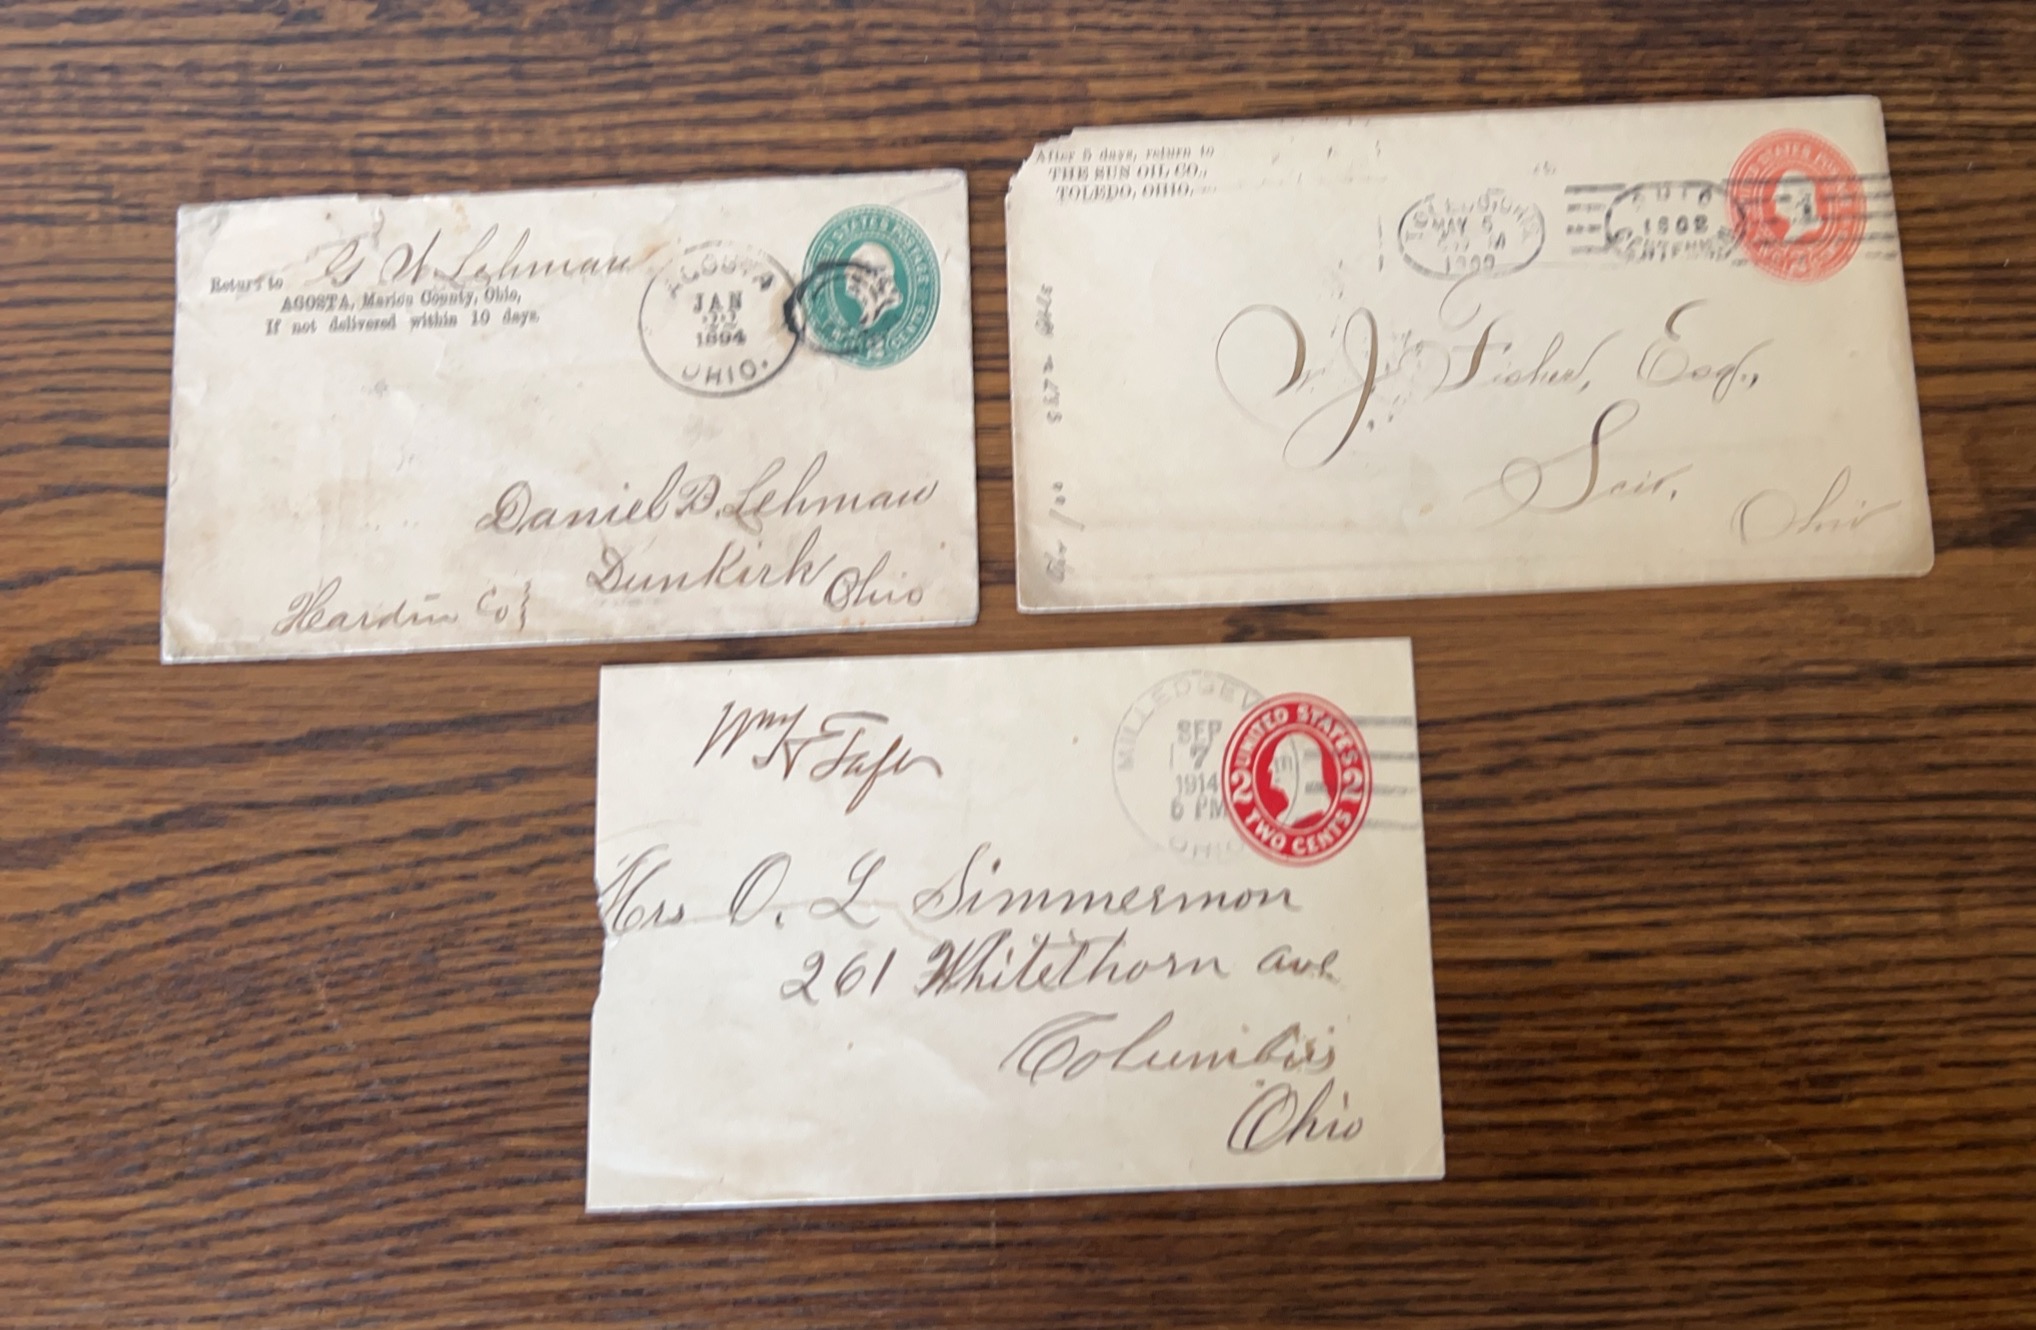 Return to G W Lehman
AGOSTA, Marion County, Ohio,
If not delivered within 10 days.
AGOSTA
JAN
1894
OHIO.
UNITED STATES POSTAGE
CENTS
Daniel B. Lehman
Dunkirk
Ohio
Hardin Co
After 5 days, return to
THE SUN OIL CO.,
TOLEDO, OHIO.
TOLEDO, OHIO
MAY 5
1899
OHIO
1902
CENTENNIAL
J. Fisher, Esq.,
Scio,
Ohio
Wm H Taft
MILLEDGEV
SEP
7
1914
6 PM
OHIO
UNITED STATES
2 2
TWO CENTS
Mrs O. L Simmermon
261 Whitethorn ave
Columbus
Ohio